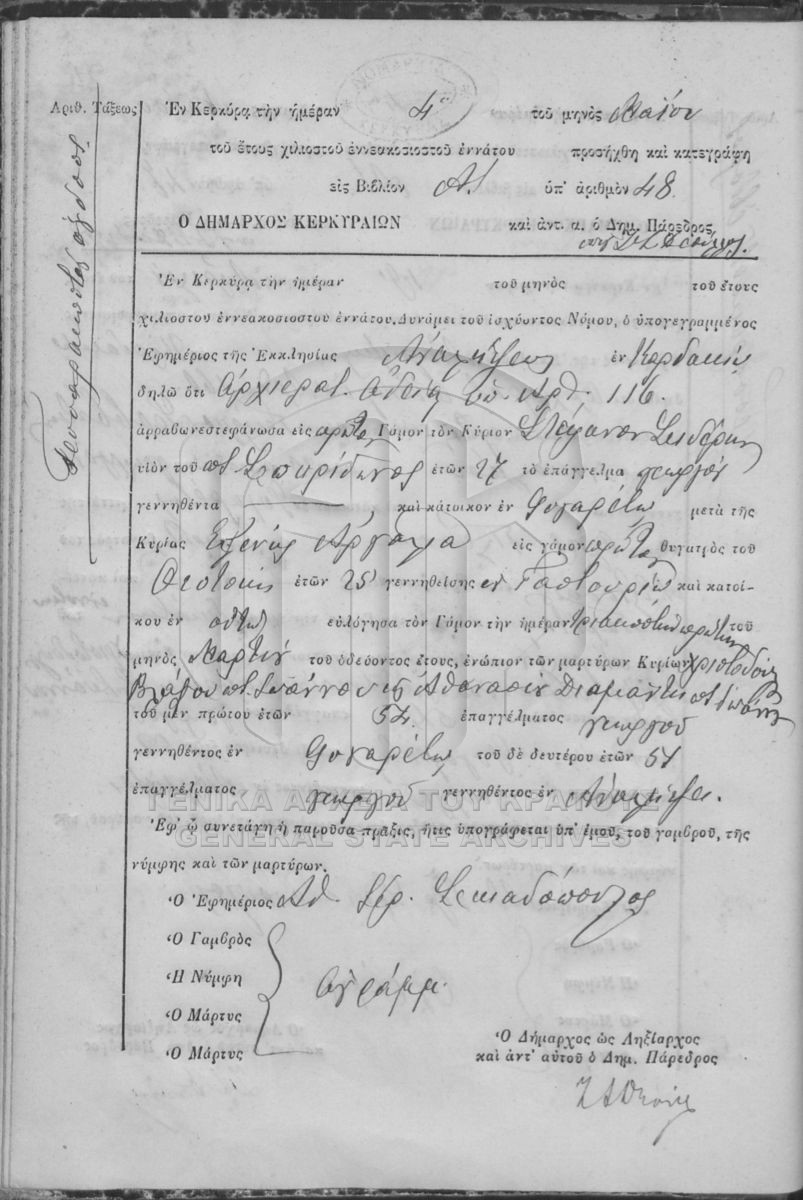 Αριθ. Τάξεως
Τεσσαρακοστός όγδοος
Ἐν Κερκύρᾳ τὴν ἡμέραν 4 τοῦ μηνὸς Μαΐου
τοῦ ἔτους χιλιοστοῦ ἐννεακοσιοστοῦ ἐννάτου προσήχθη καὶ κατεγράφη
εἰς Βιβλίον Α! ὑπ' ἀριθμὸν 48.
Ο ΔΗΜΑΡΧΟΣ ΚΕΡΚΥΡΑΙΩΝ καὶ ἀντ. α. ὁ Δημ. Πάρεδρος
Ἐν Κερκύρᾳ τὴν ἡμέραν τοῦ μηνὸς τοῦ ἔτους
χιλιοστοῦ ἐννεακοσιοστοῦ ἐννάτου. Δυνάμει τοῦ ἰσχύοντος Νόμου, ὁ ὑπογεγραμμένος
Ἐφημέριος τῆς Ἐκκλησίας Αναλήψεως ἐν Καρδακίῳ
δηλῶ ὅτι Αρχιερατ. αδεία ὑπ. Αρθ. 116.
ἀρραβωνεστεφάνωσα εἰς πρῶτον Γάμον τὸν Κύριον Στέφανον
υἱὸν τοῦ ποτ. Σπυρίδωνος ἐτῶν 27 τὸ ἐπάγγελμα γεωργὸν
γεννηθέντα , καὶ κάτοικον ἐν Φυγαρέτῳ μετὰ τῆς
Κυρίας Ευγενίας εἰς γάμον πρῶτον θυγατρὸς τοῦ
Θεοτόκη ἐτῶν 25 γεννηθείσης ἐν Γαστουρίῳ καὶ κατοί-
κου ἐν αὐτῷ εὐλόγησα τὸν Γάμον τὴν ἡμέραν τριακοστὴν πρώτην τοῦ
μηνὸς Μαρτίου τοῦ ὁδεύοντος ἔτους, ἐνώπιον τῶν μαρτύρων Κυρίων Χριστοδούλου
Βλάχου ποτ. Ιωάννου καὶ Αθανασίου Διαμάντη ποτ. Ιωάννη
τοῦ μὲν πρώτου ἐτῶν 54. ἐπαγγέλματος γεωργοῦ
γεννηθέντος ἐν Φυγαρέτῳ τοῦ δὲ δευτέρου ἐτῶν 51
ἐπαγγέλματος γεωργοῦ γεννηθέντος ἐν Αναλήψει.
ΓΕΝΙΚΑ ΑΡΧΕΙΑ ΤΟΥ ΚΡΑΤΟΥΣ
Ἐφ' ᾧ συνετάγη ἡ παροῦσα πρᾶξις, ἥτις ὑπογράφεται ὑπ' ἐμοῦ, τοῦ γαμβροῦ, τῆς
GENERAL STATE ARCHIVES
νύμφης καὶ τῶν μαρτύρων.
Ὁ Ἐφημέριος
Ὁ Γαμβρὸς
Ἡ Νύμφη αγράμμ.
Ὁ Μάρτυς
Ὁ Μάρτυς
Ὁ Δήμαρχος ὡς Ληξίαρχος
καὶ ἀντ' αὐτοῦ ὁ Δημ. Πάρεδρος